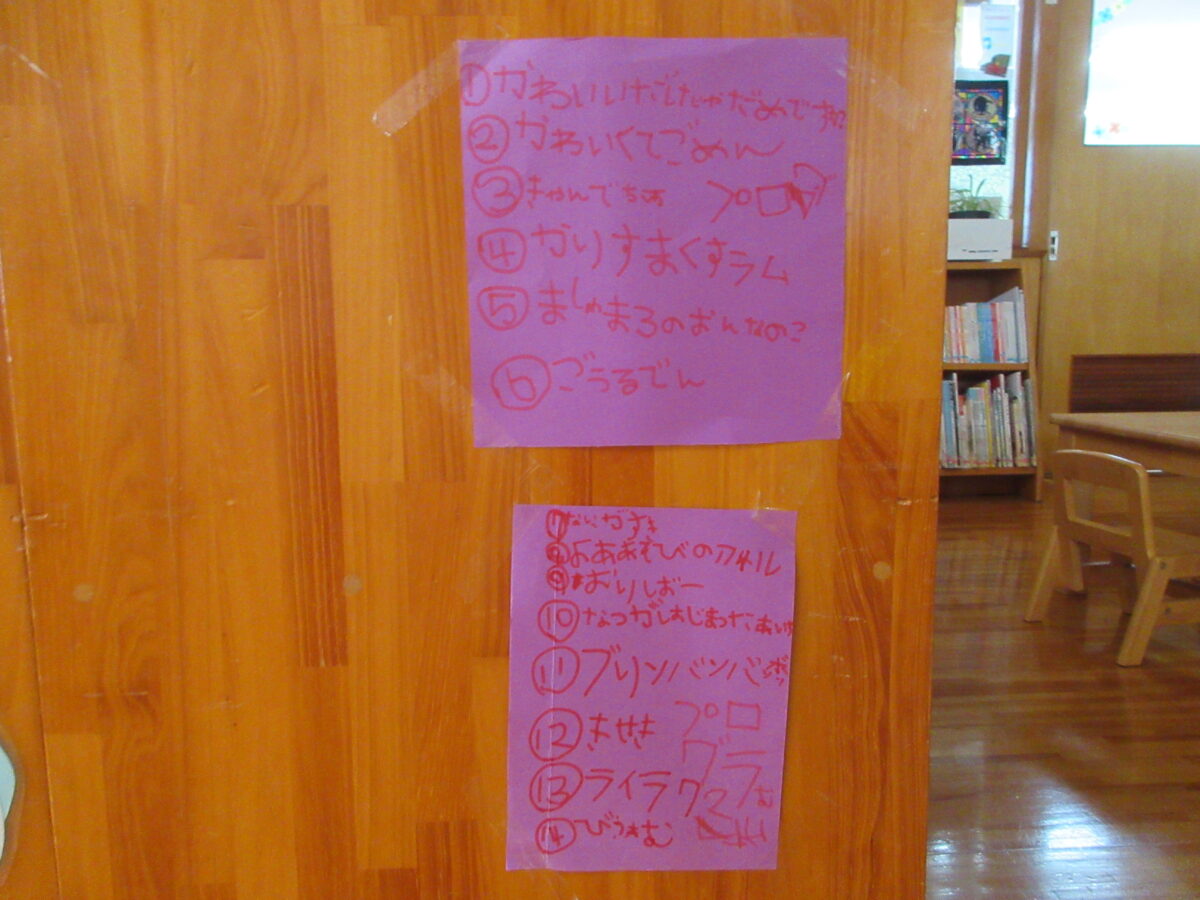 ①かわいいだけじゃだめですか?
②かわいくてごめん
③きゃんでぃ プログ
④かりすまっくすラム
⑤ましゅまろのおんなのこ
⑥ごうるでん
⑦ないがすき
⑧よあおそびのアイドル
⑨おりしおー
⑩なつがはじまったあいず
⑪ブリンバンバンボン
⑫きせき プロ
グラ
⑬ライラク
む
⑭びりぁむ